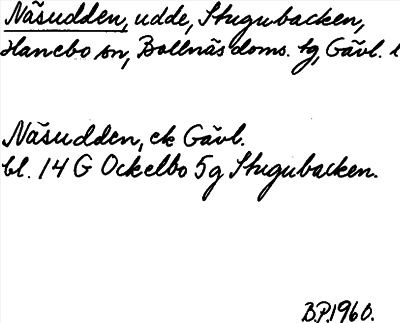 Näsudden, udde, Stugubacken,
Hanebo sn, Bollnäs doms. tg, Gävl. l
Näsudden, ek Gävl.
bl. 14 G Ockelbo 5g Stugubacken.
B.P. 1960.